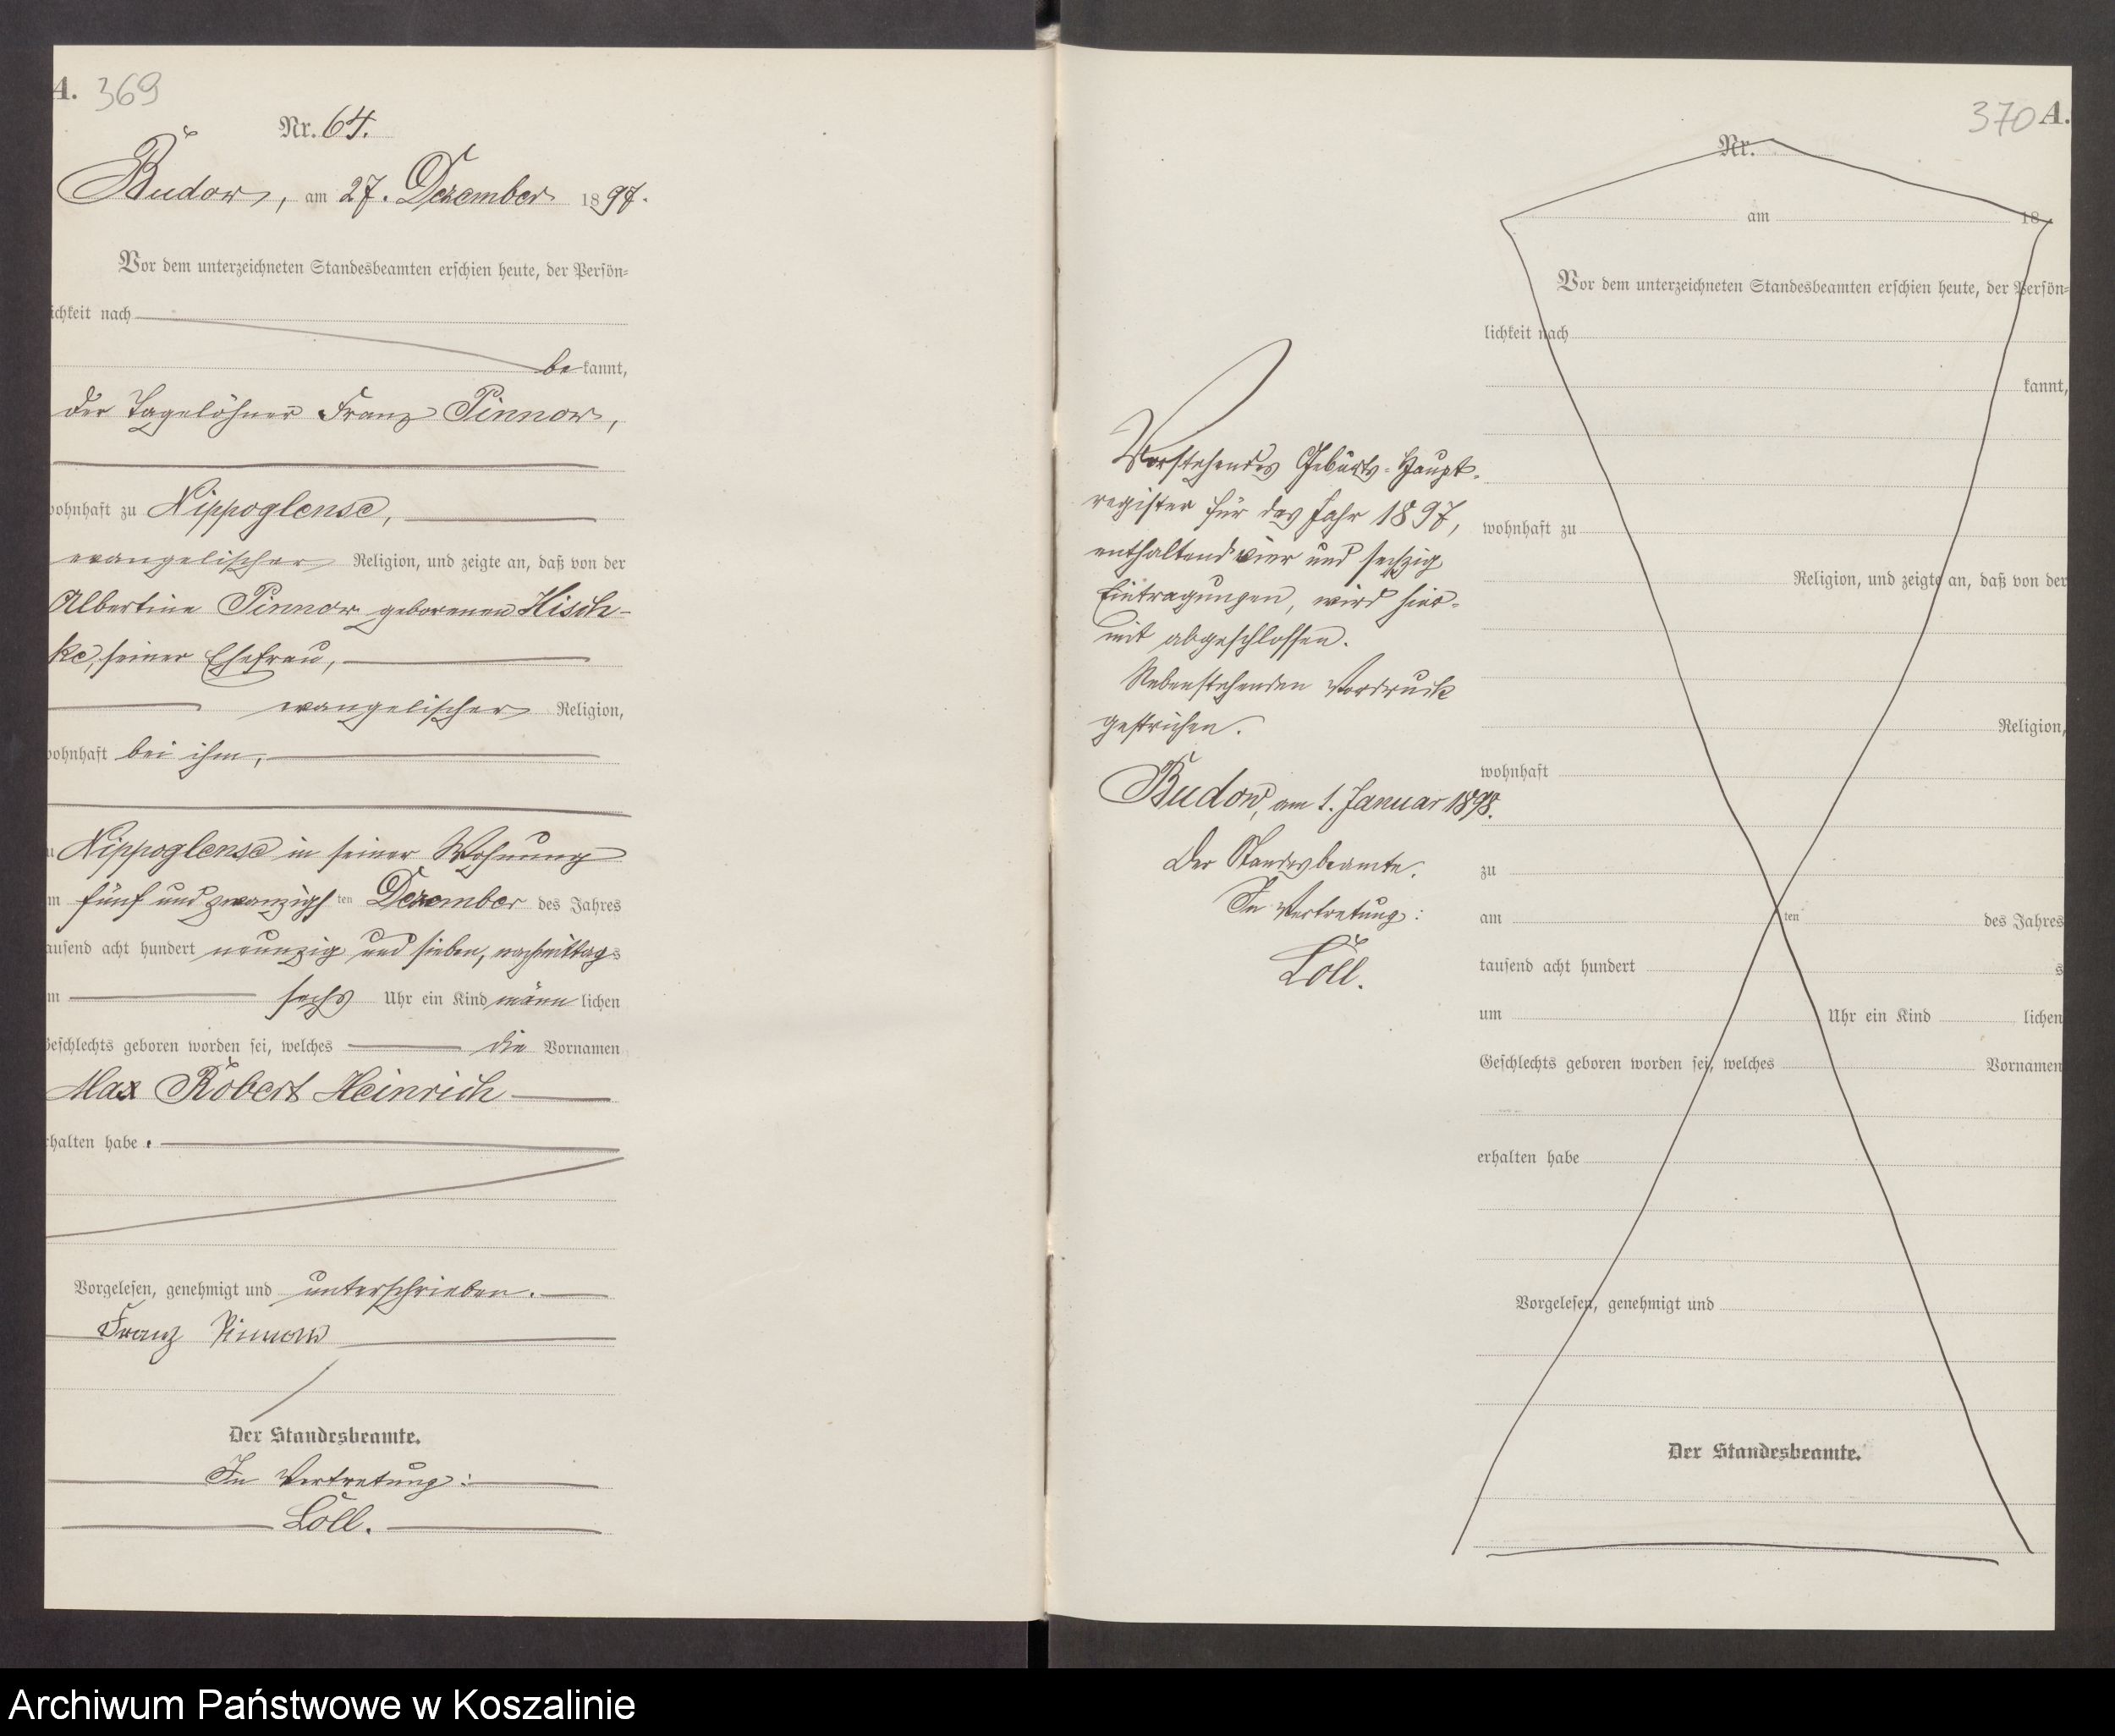 A. 369
Nr. 64.
Budow, am 27. Dezember 1897.
Vor dem unterzeichneten Standesbeamten erschien heute, der Persön-
ichkeit nach
be kannt,
der Tagelöhner Franz Pinnow,
ohnhaft zu Nippoglense,
evangelischer Religion, und zeigte an, daß von der
Albertine Pinnow geborenen Hisch-
ke, seiner Ehefrau,
evangelischer Religion,
ohnhaft bei ihm,
u Nippoglense in seiner Wohnung
m fünf und zwanzigsten Dezember des Jahres
ausend acht hundert neunzig und sieben, nachmittags
m sechs Uhr ein Kind männ lichen
Geschlechts geboren worden sei, welches die Vornamen
Max Robert Heinrich
rhalten habe.
Vorgelesen, genehmigt und unterschrieben.
Franz Pinnow
Der Standesbeamte.
In Vertretung:
Löll.
370 A.
Vorstehendes Geburts-Haupt-
register für das Jahr 1897,
enthaltend vier und sechzig
Eintragungen, wird hier-
mit abgeschlossen.
Nebenstehenden Vordruck
gestrichen.
Budow, am 1. Januar 1898.
Der Standesbeamte.
In Vertretung:
Löll.
Nr.
am 18
Vor dem unterzeichneten Standesbeamten erschien heute, der Persön-
lichkeit nach
kannt,
wohnhaft zu
Religion, und zeigte an, daß von der
Religion,
wohnhaft
zu
am ten des Jahres
tausend acht hundert s
um Uhr ein Kind lichen
Geschlechts geboren worden sei, welches Vornamen
erhalten habe
Vorgelesen, genehmigt und
Der Standesbeamte.
Archiwum Państwowe w Koszalinie